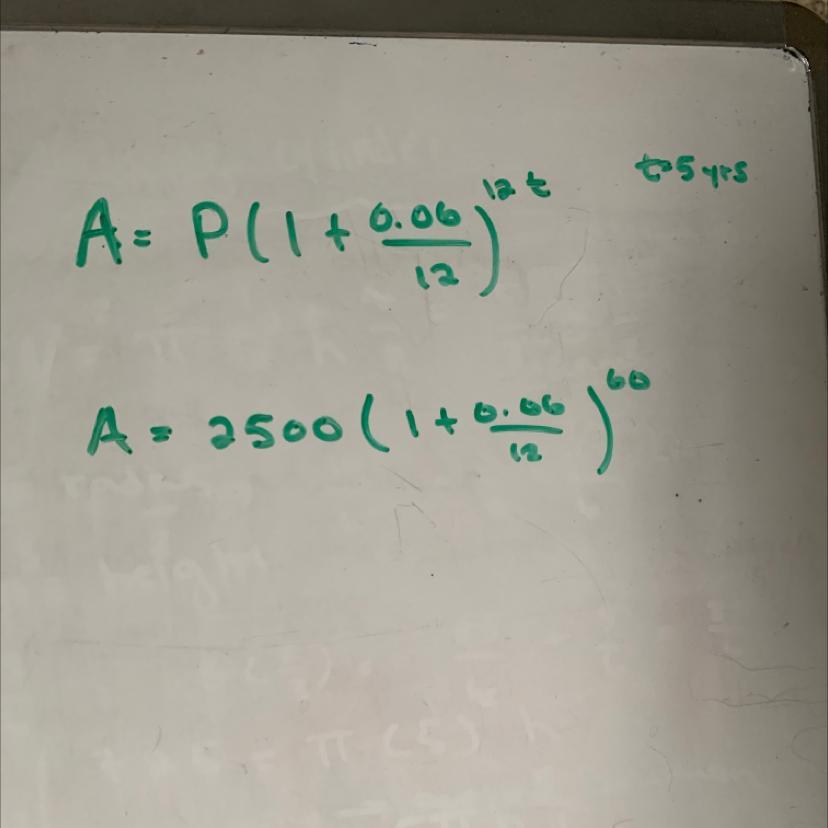 A = P(1 + 0.06/12)^12t t=5 yrs
A = 2500(1 + 0.06/12)^60